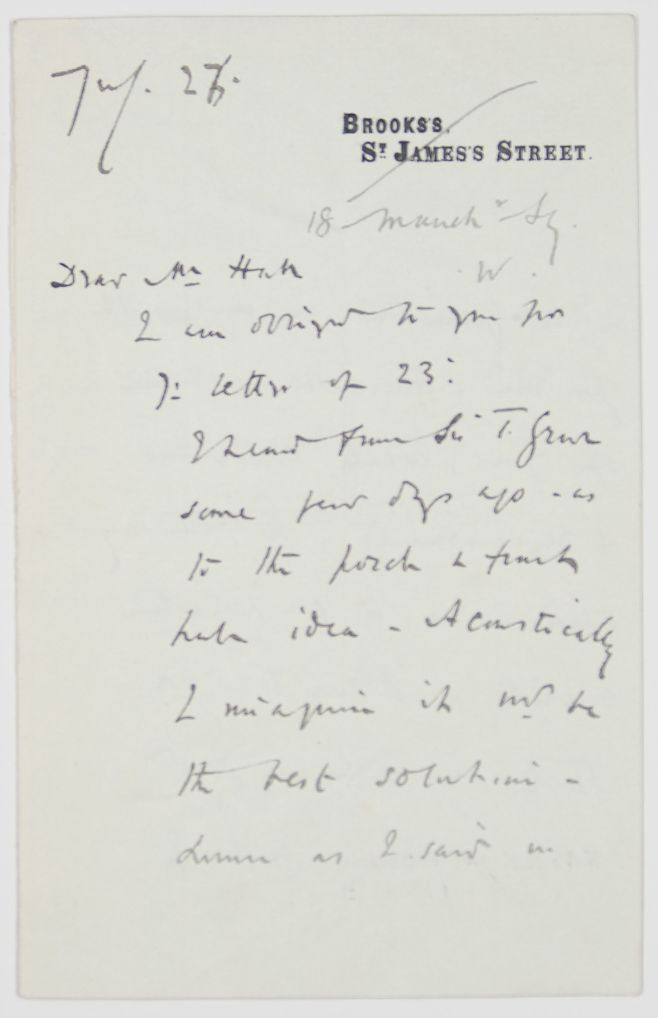 27.
BROOKS'S.
ST JAMES'S STREET.
18 Manchr Sq.
W.
Dear Mr
I am obliged to you for
yr letter of 23:
I heard from Sir T.
some few days ago - as
to the porch
idea - Acoustically
I imagine it wd be
the best solution -
as I said in